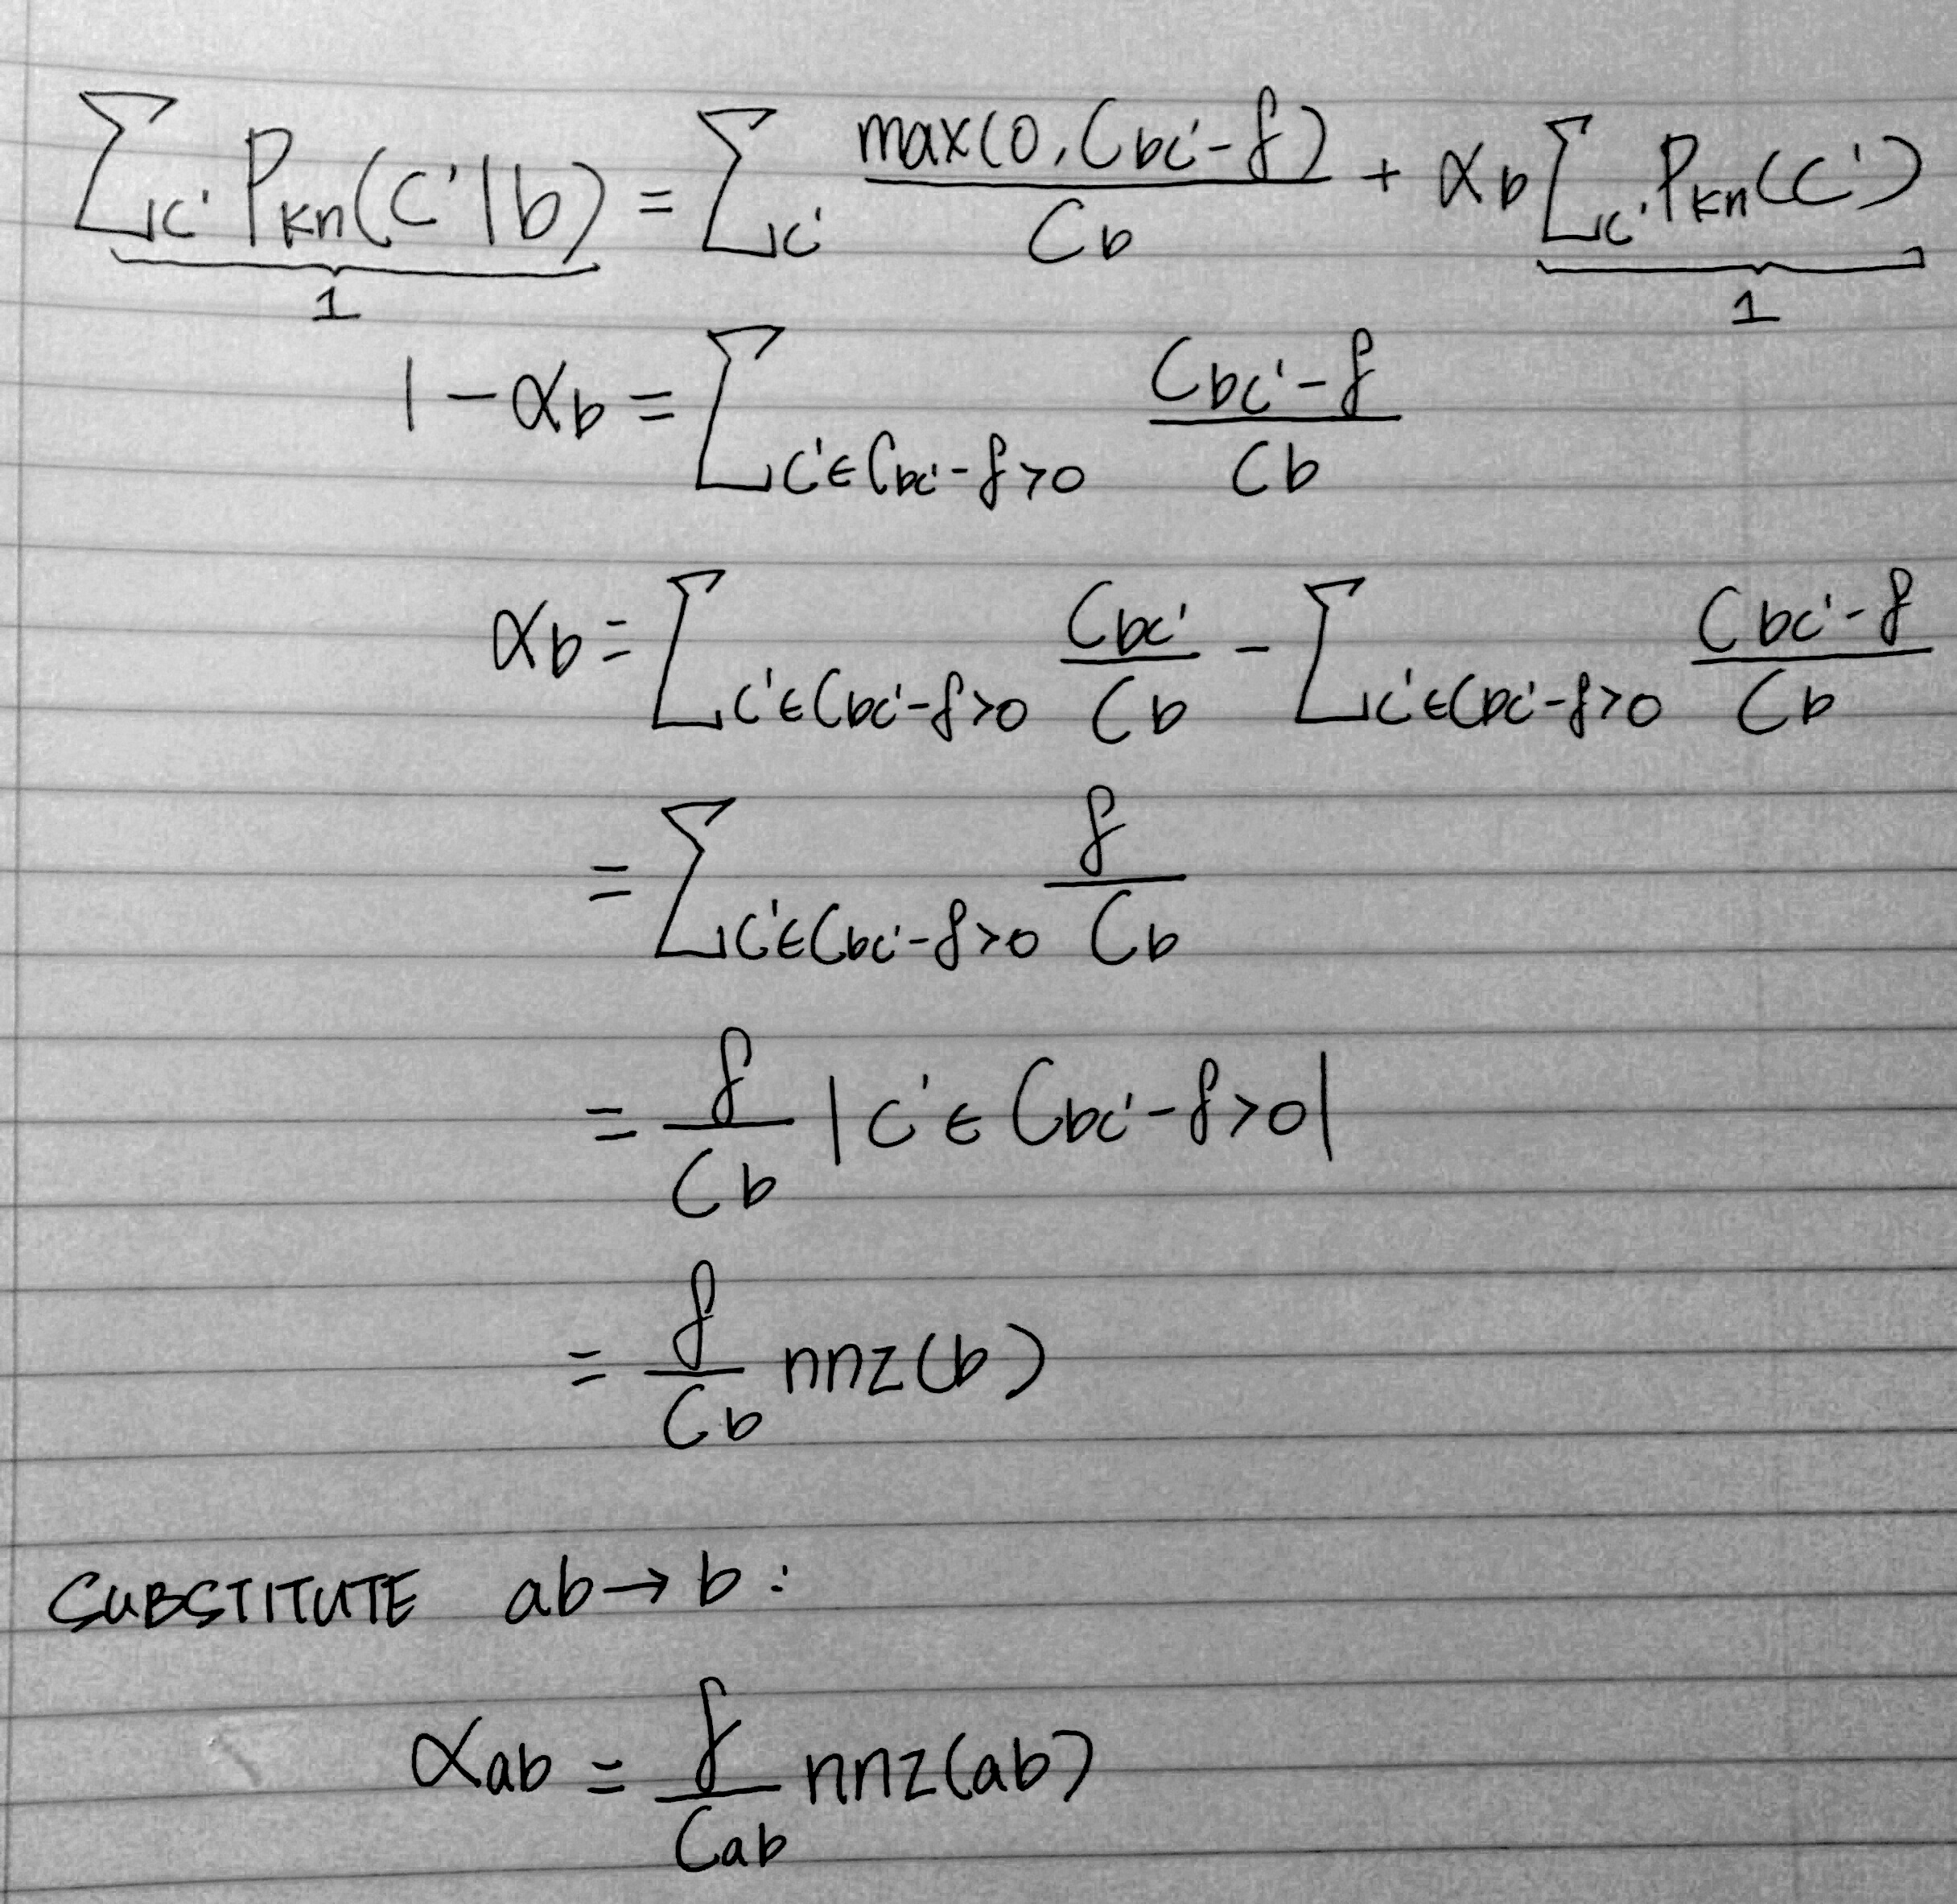 ∑_{c'} P_{kn}(c'|b) = ∑_{c'} max(0, C_{bc'} - f) / C_b + α_b ∑_{c'} P_{kn}(c')
1 1
1 - α_b = ∑_{c' ∈ C_{bc'} - f > 0} (C_{bc'} - f) / C_b
α_b = ∑_{c' ∈ C_{bc'} - f > 0} C_{bc'} / C_b - ∑_{c' ∈ C_{bc'} - f > 0} (C_{bc'} - f) / C_b
= ∑_{c' ∈ C_{bc'} - f > 0} f / C_b
= f / C_b |c' ∈ C_{bc'} - f > 0|
= f / C_b nnz(b)
SUBSTITUTE ab → b :
α_{ab} = f / C_{ab} nnz(ab)